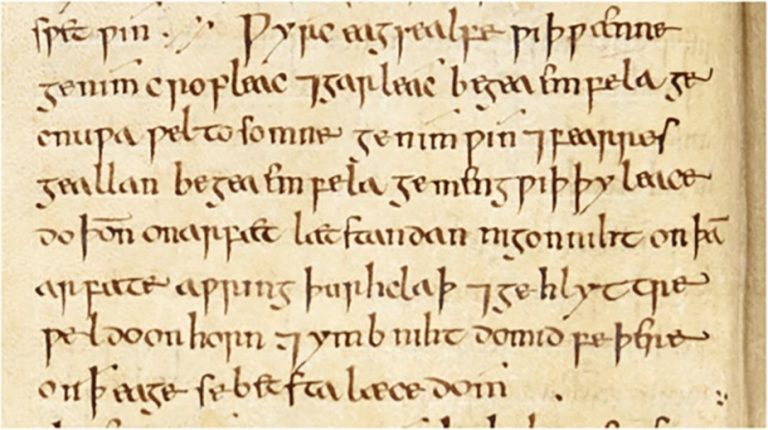 sƿet ƿin . Ƿyrc eagsealfe ƿiþ ƿænne
genim cropleac ⁊ garleac begea emfela ge
cnuƿa ƿel tosomne genim ƿin ⁊ fearres
geallan begea emfela gemeng ƿiþ þy leace
do þōn on arfæt læt standan nigon niht on þā
arfate aƿring þurh claþ ⁊ gehlyttre
ƿel do on horn ⁊ ymb niht do mid feþre
on ꝥ eage se betsta læcedom .